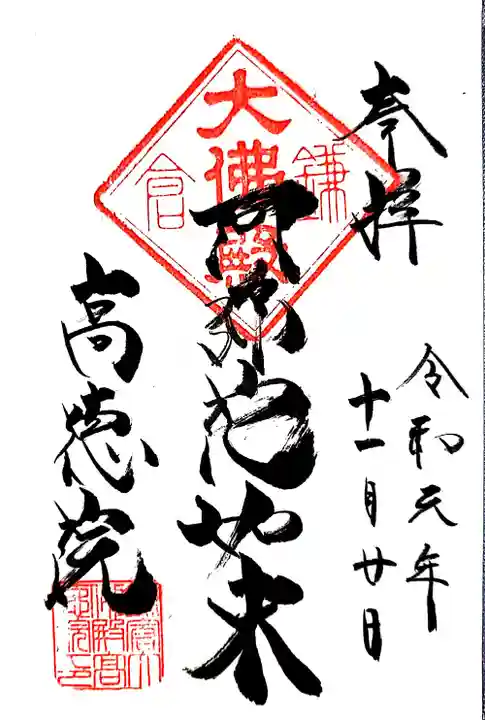 奉拝
令和元年
十一月廿日
鎌倉
大佛殿
阿弥陀如来
高徳院